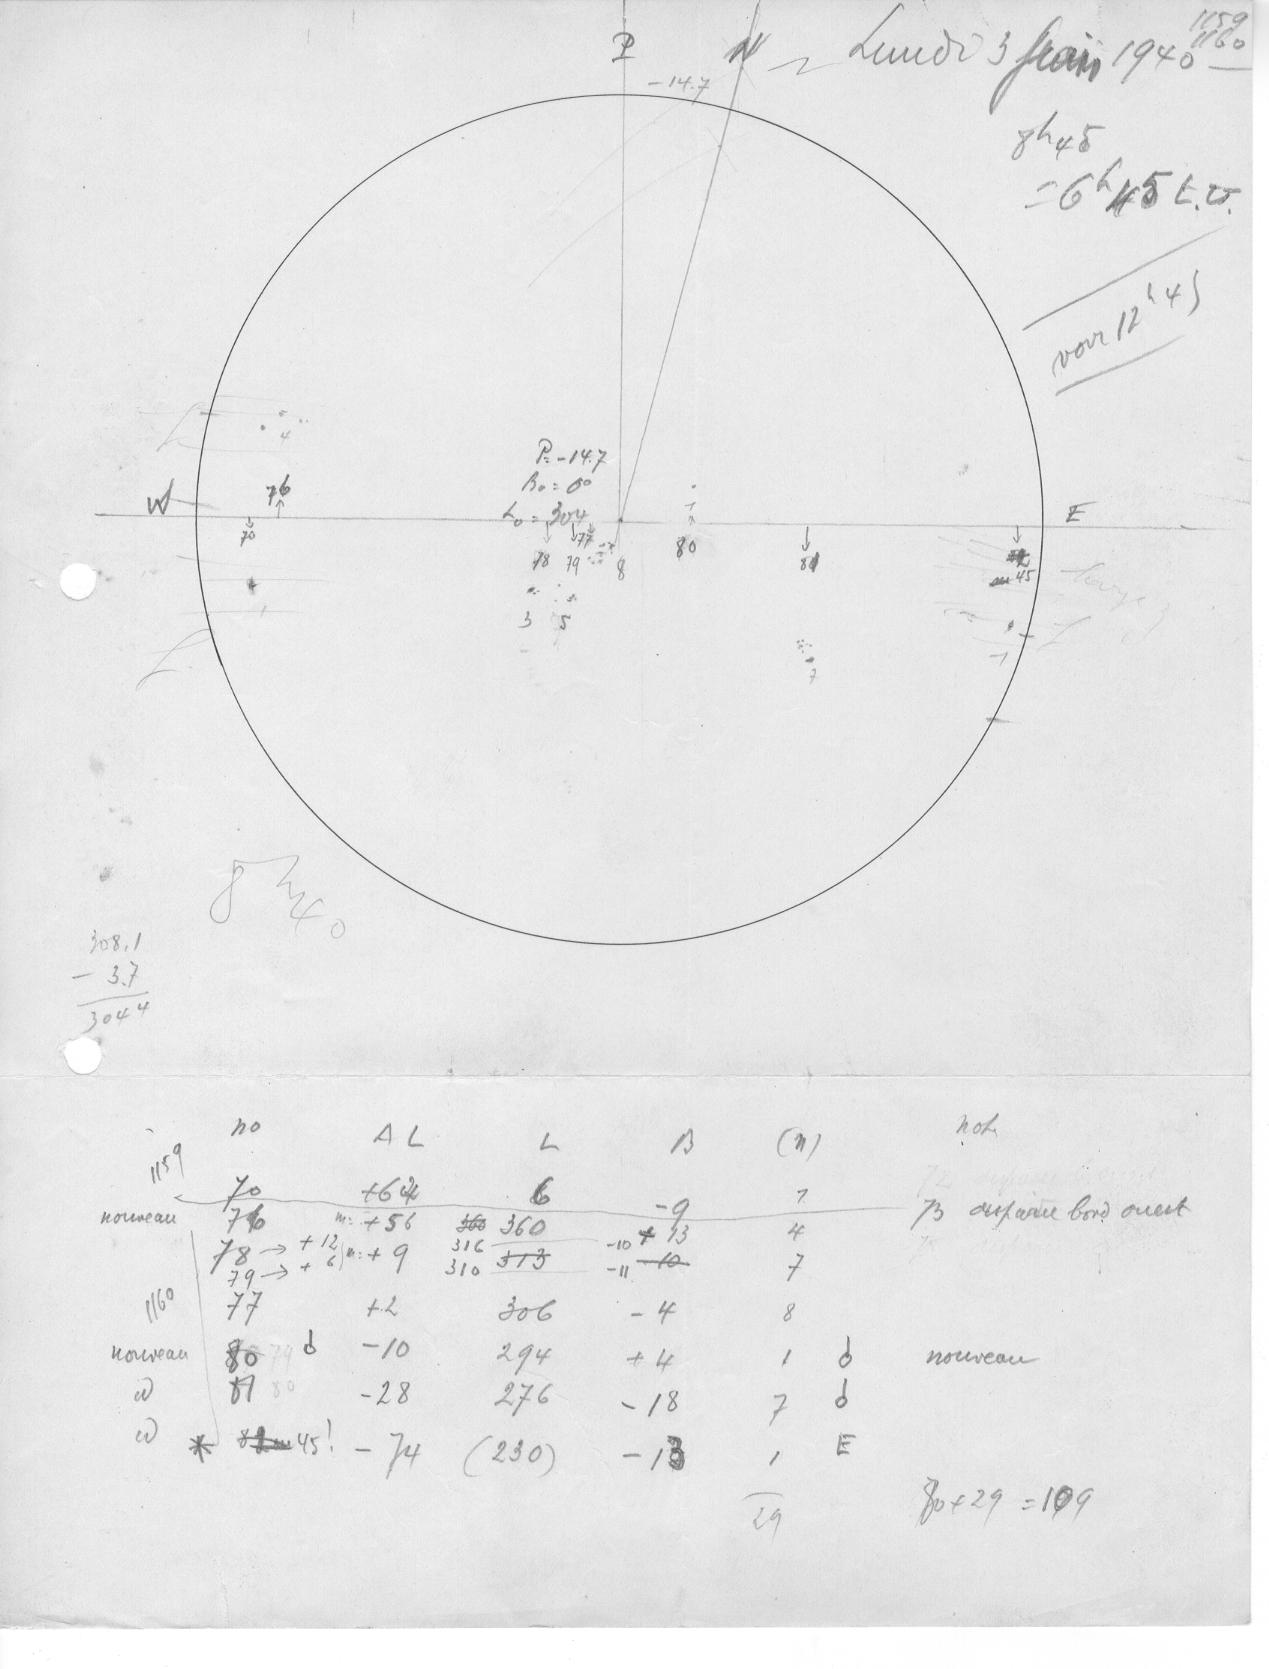 1159
1160
Lundi 3 Juin 1940
P N
-14.7
8h45
= 6h45 t.u.
voir 12h45
4
P = -14.7
B0 = 0°
L0 = 304
W 76 E
70
77
78 79 8 80 81 45
1
3 5
7
1
8h40
308.1
- 3.7
304.4
no Δ L L B (n) note
1159
70 +64 6 -9 1
nouveau 76 m: +56 360 360 +13 4 73 disparue bord ouest
78 → +12 m: +9 316 313 -10 -10 7
79 → +6 310 -11
1160
77 +2 306 -4 8
nouveau 80 79 -10 294 +4 1 nouveau
81 80 -28 276 -18 7
* 82 45! -74 (230) -13 1 E
29
80 + 29 = 109